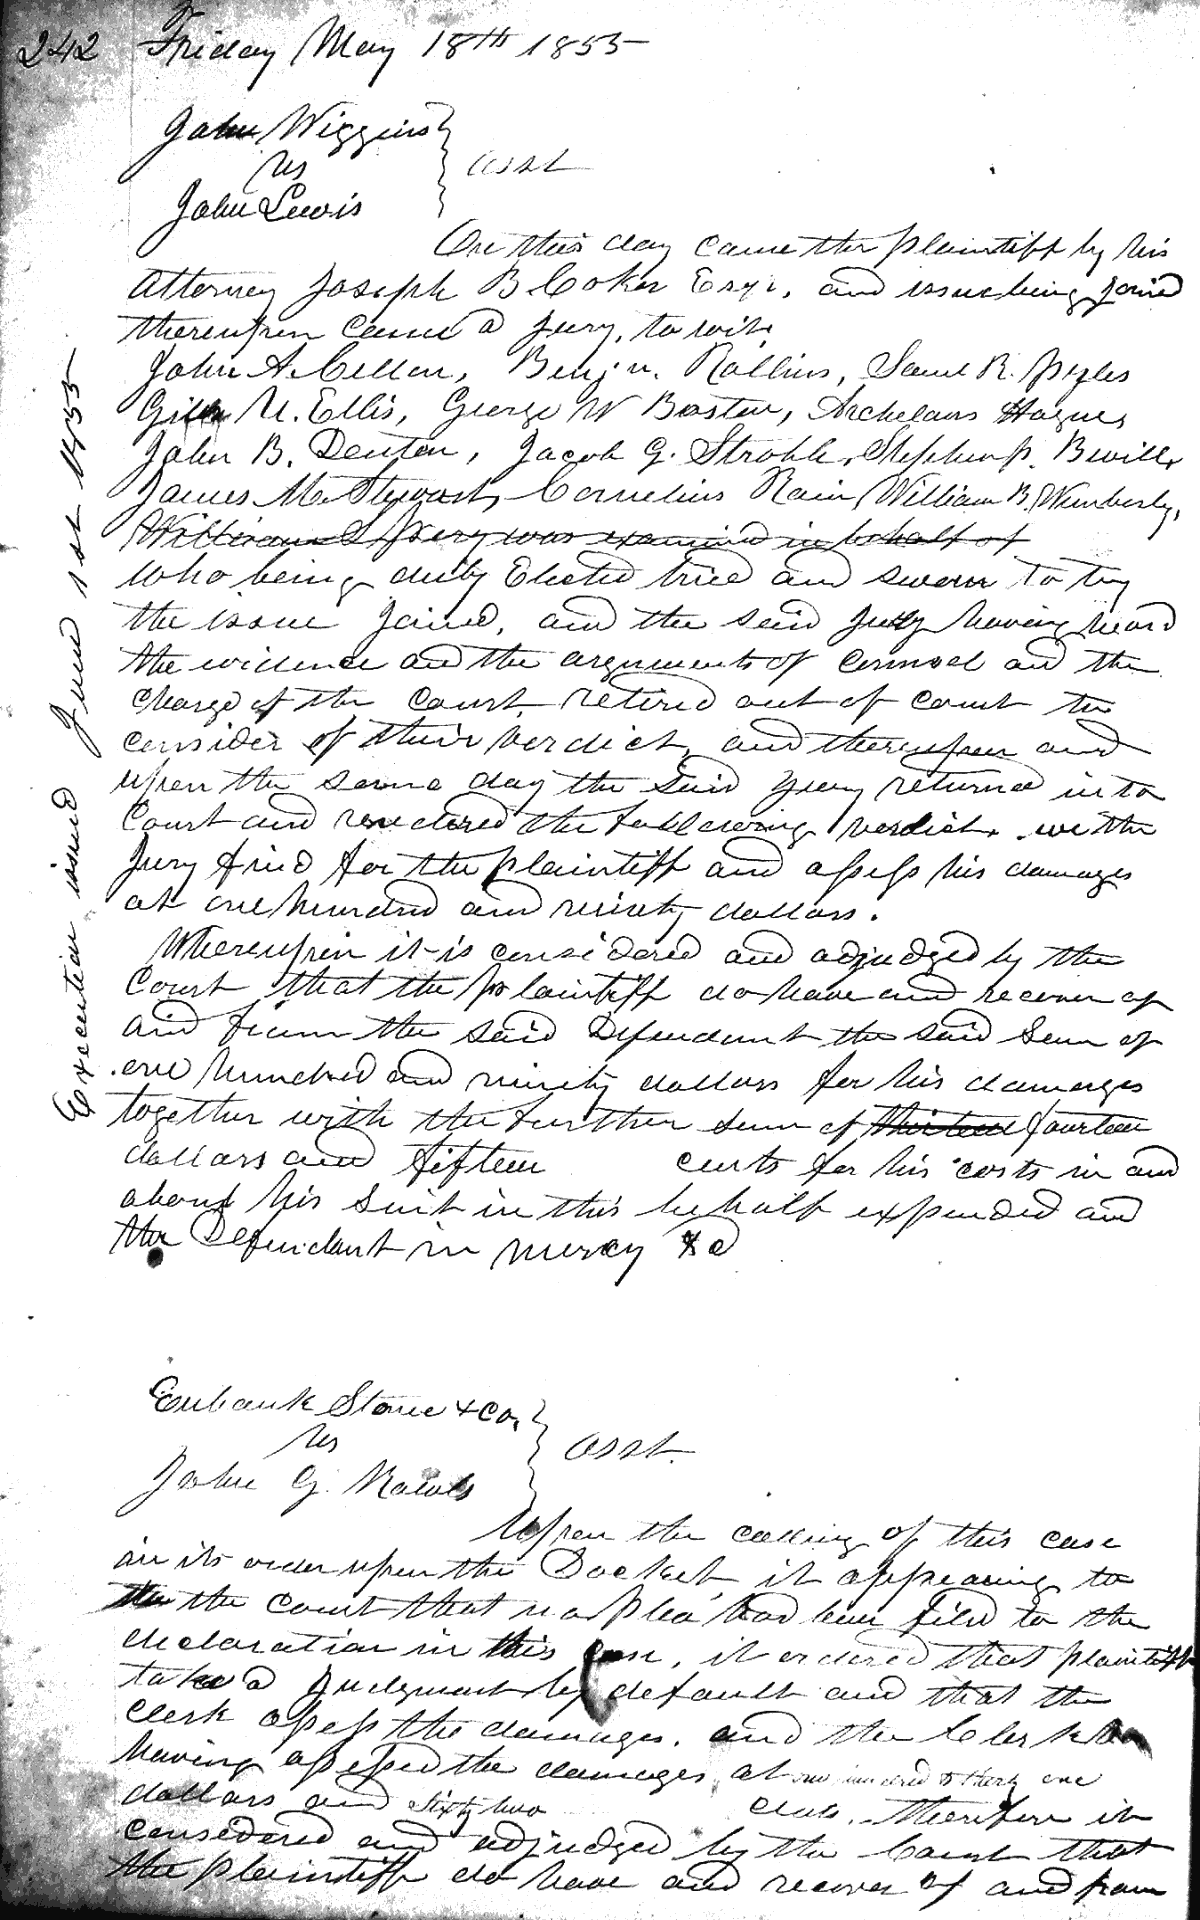 242 Friday May 18th 1855
John Wiggins
vs
Asst
John Lewis
On this day came the plaintiff by his
Attorney Joseph B Coker Esqr. and issue being joined
thereupon came a jury, to wit,
John A. Cellon, Benjn. Rollins, Saml R. Pyles
Giles U. Ellis, George W Boston, Archelaus Hagues
John B. Denton, Jacob G. Stroble, Stephen P. Bevill,
James M. Stewart, Cornelius Rain, William B. Wimberly,
William S Avery was examined in behalf of
who being duly Elected tried and sworn to try
the issue joined, and the said jury having heard
the evidence and the arguments of counsel and the
charge of the court retired out of court to
consider of their verdict, and thereupon and
upon the same day the said jury returned into
Court and rendered the following verdict. we the
Jury find for the plaintiff and assess his damages
at one hundred and ninety dollars.
Whereupon it is considered and adjudged by the
Court that the plaintiff do have and recover of
and from the said Defendant the said Sum of
one hundred and ninety dollars for his damages
together with the further sum of thirteen fourteen
dollars and fifteen cents for his costs in and
about his suit in this behalf expended and
the Defendant in mercy &c
Execution issued June 1st 1855
Eubank Stone & Co,
vs
Asst.
John G. Rawls
Upon the calling of this case
in its order upon the Docket, it appearing to
the the court that no plea had been filed to the
declaration in this case, it ordered that plaintiff
take a judgment by default and that the
clerk assess the damages. and the Clerk
having assessed the damages at one hundred & thirty one
dollars and sixty two cents, therefore it
considered and adjudged by the Court that
the plaintiff do have and recover of and from